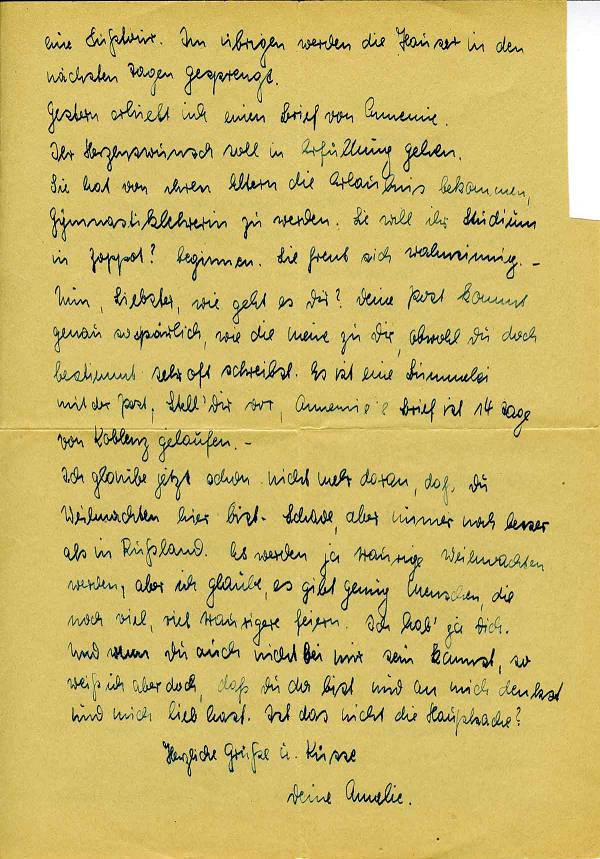 eine Lußtour. Im übrigen werden die Häuser in den
nächsten Tagen gesprengt.
Gestern erhielt ich einen Brief von Annemie.
Ihr Herzenswunsch soll in Erfüllung gehen.
Sie hat von ihren Eltern die Erlaubnis bekommen,
Gymnastiklehrerin zu werden. Sie will ihr Studium
in Zoppot? beginnen. Sie freut sich wahnsinnig. –
Nun, Liebster, wie geht es Dir? Deine Post kommt
genau so spärlich, wie die meine zu Dir, obwohl Du doch
bestimmt sehr oft schreibst. Es ist eine Bummelei
mit der Post, Stell' Dir vor, Annemie's Brief ist 14 Tage
von Koblenz gelaufen. –
Ich glaube jetzt schon nicht mehr daran, daß Du
Weihnachten hier bist. Schade, aber immer noch besser
als in Rußland. Es werden ja traurige Weihnachten
werden, aber ich glaube, es gibt genug Menschen, die
noch viel, viel traurigere feiern. Ich hab' ja Dich.
Und wenn Du auch nicht bei mir sein kannst, so
weiß ich aber doch, daß Du da bist und an mich denkst
und mich lieb hast. Ist das nicht die Hauptsache?
Herzliche Grüße u. Küsse
Deine Amelie.